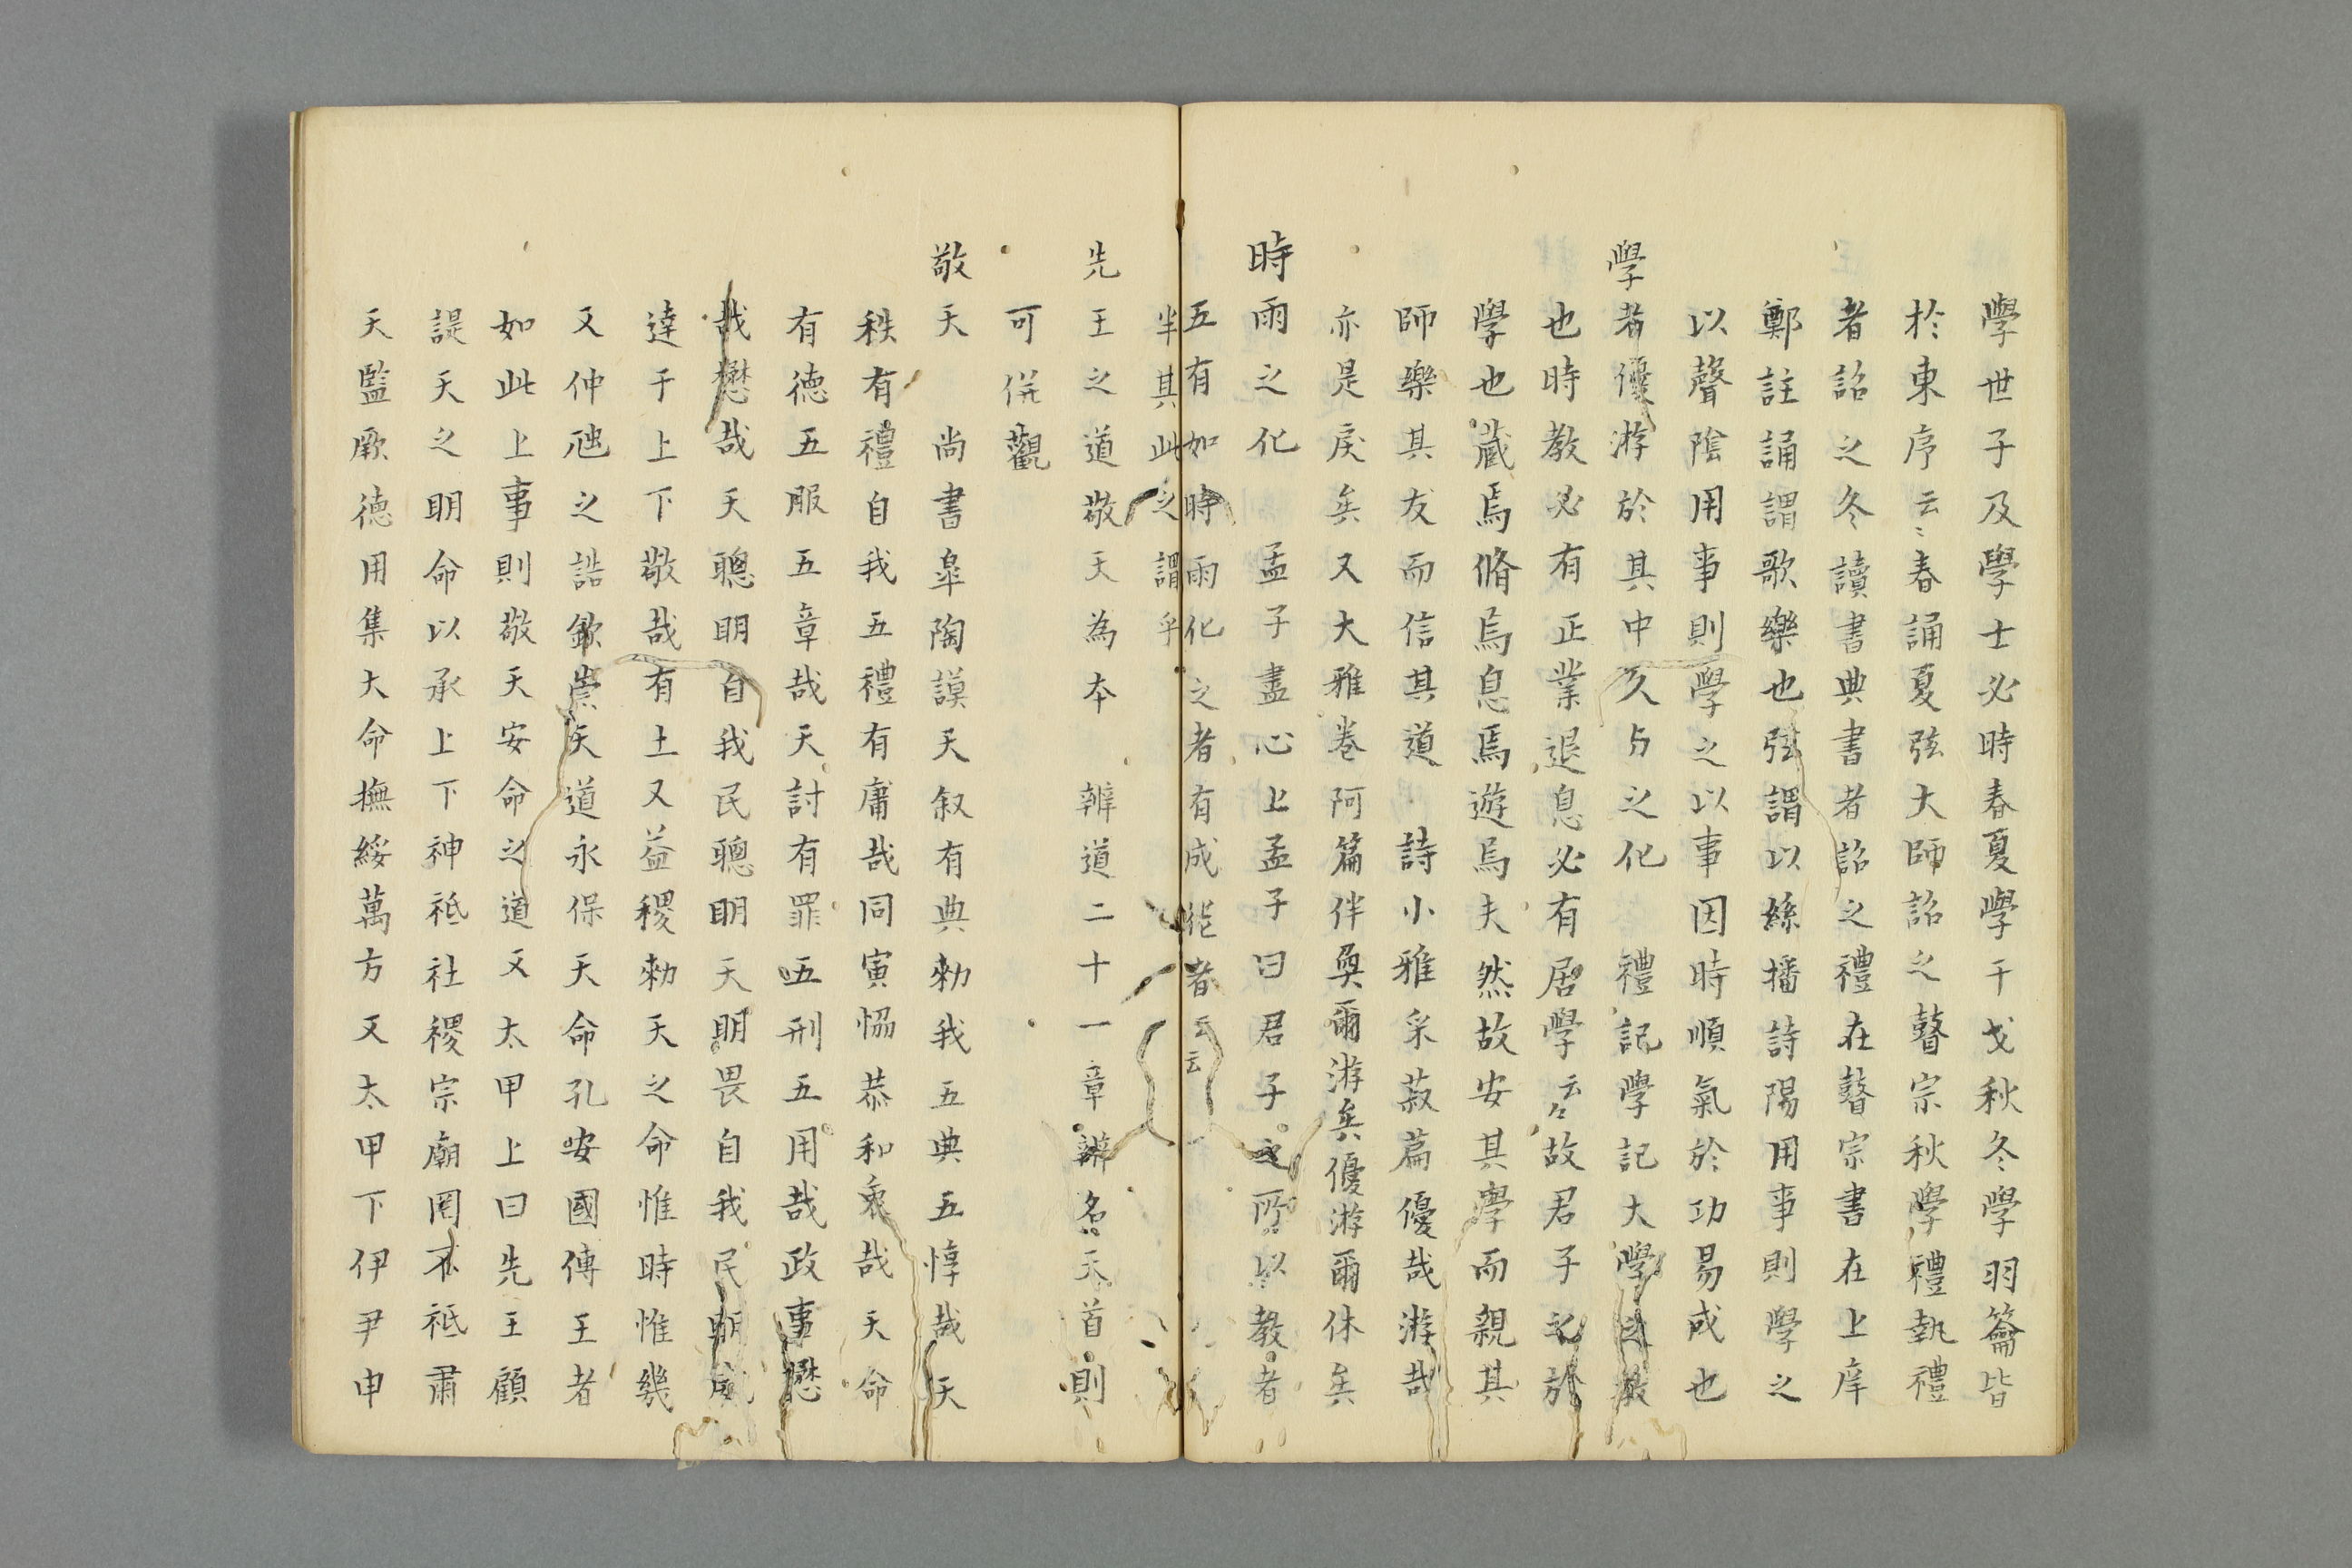 學世子及學士必時春夏學干戈秋冬學羽籥皆
於東序云〻春誦夏弦大師詔之瞽宗秋學禮執禮
者詔之冬讀書典書者詔之禮在瞽宗書在上庠
鄭註誦謂歌樂也弦謂以絲播詩陽用事則學之
以聲陰用事則學之以事因時順氣於功易成也
學者優游於其中久与之化　禮記學記大學之教
也時教必有正業退息必有居學云々故君子之於
學也藏焉脩焉息焉遊焉夫然故安其學而親其
師樂其友而信其道　詩小雅采菽篇優哉游哉
亦是戾矣又大雅卷阿篇伴奐爾游矣優游爾休矣
時雨之化　孟子盡心上孟子曰君子之所以教者
五有如時雨化之者有成德者云云
半其此之謂乎
先王之道敬天為本　辨道二十一章辨名天首則
可併觀
敬天　尚書皐陶謨天叙有典勅我五典五惇哉天
秩有禮自我五禮有庸哉同寅恊恭和衷哉天命
有徳五服五章哉天討有罪五刑五用哉政事懋
哉懋哉天聰明自我民聰明天明畏自我民明威
達于上下敬哉有土又益稷勅天之命惟時惟幾
又仲虺之誥欽崇天道永保天命孔安國傳王者
如此上事則敬天安命之道又太甲上曰先王顧
諟天之明命以承上下神祗社稷宗廟罔不祗肅
天監厥徳用集大命撫綏萬方又太甲下伊尹申